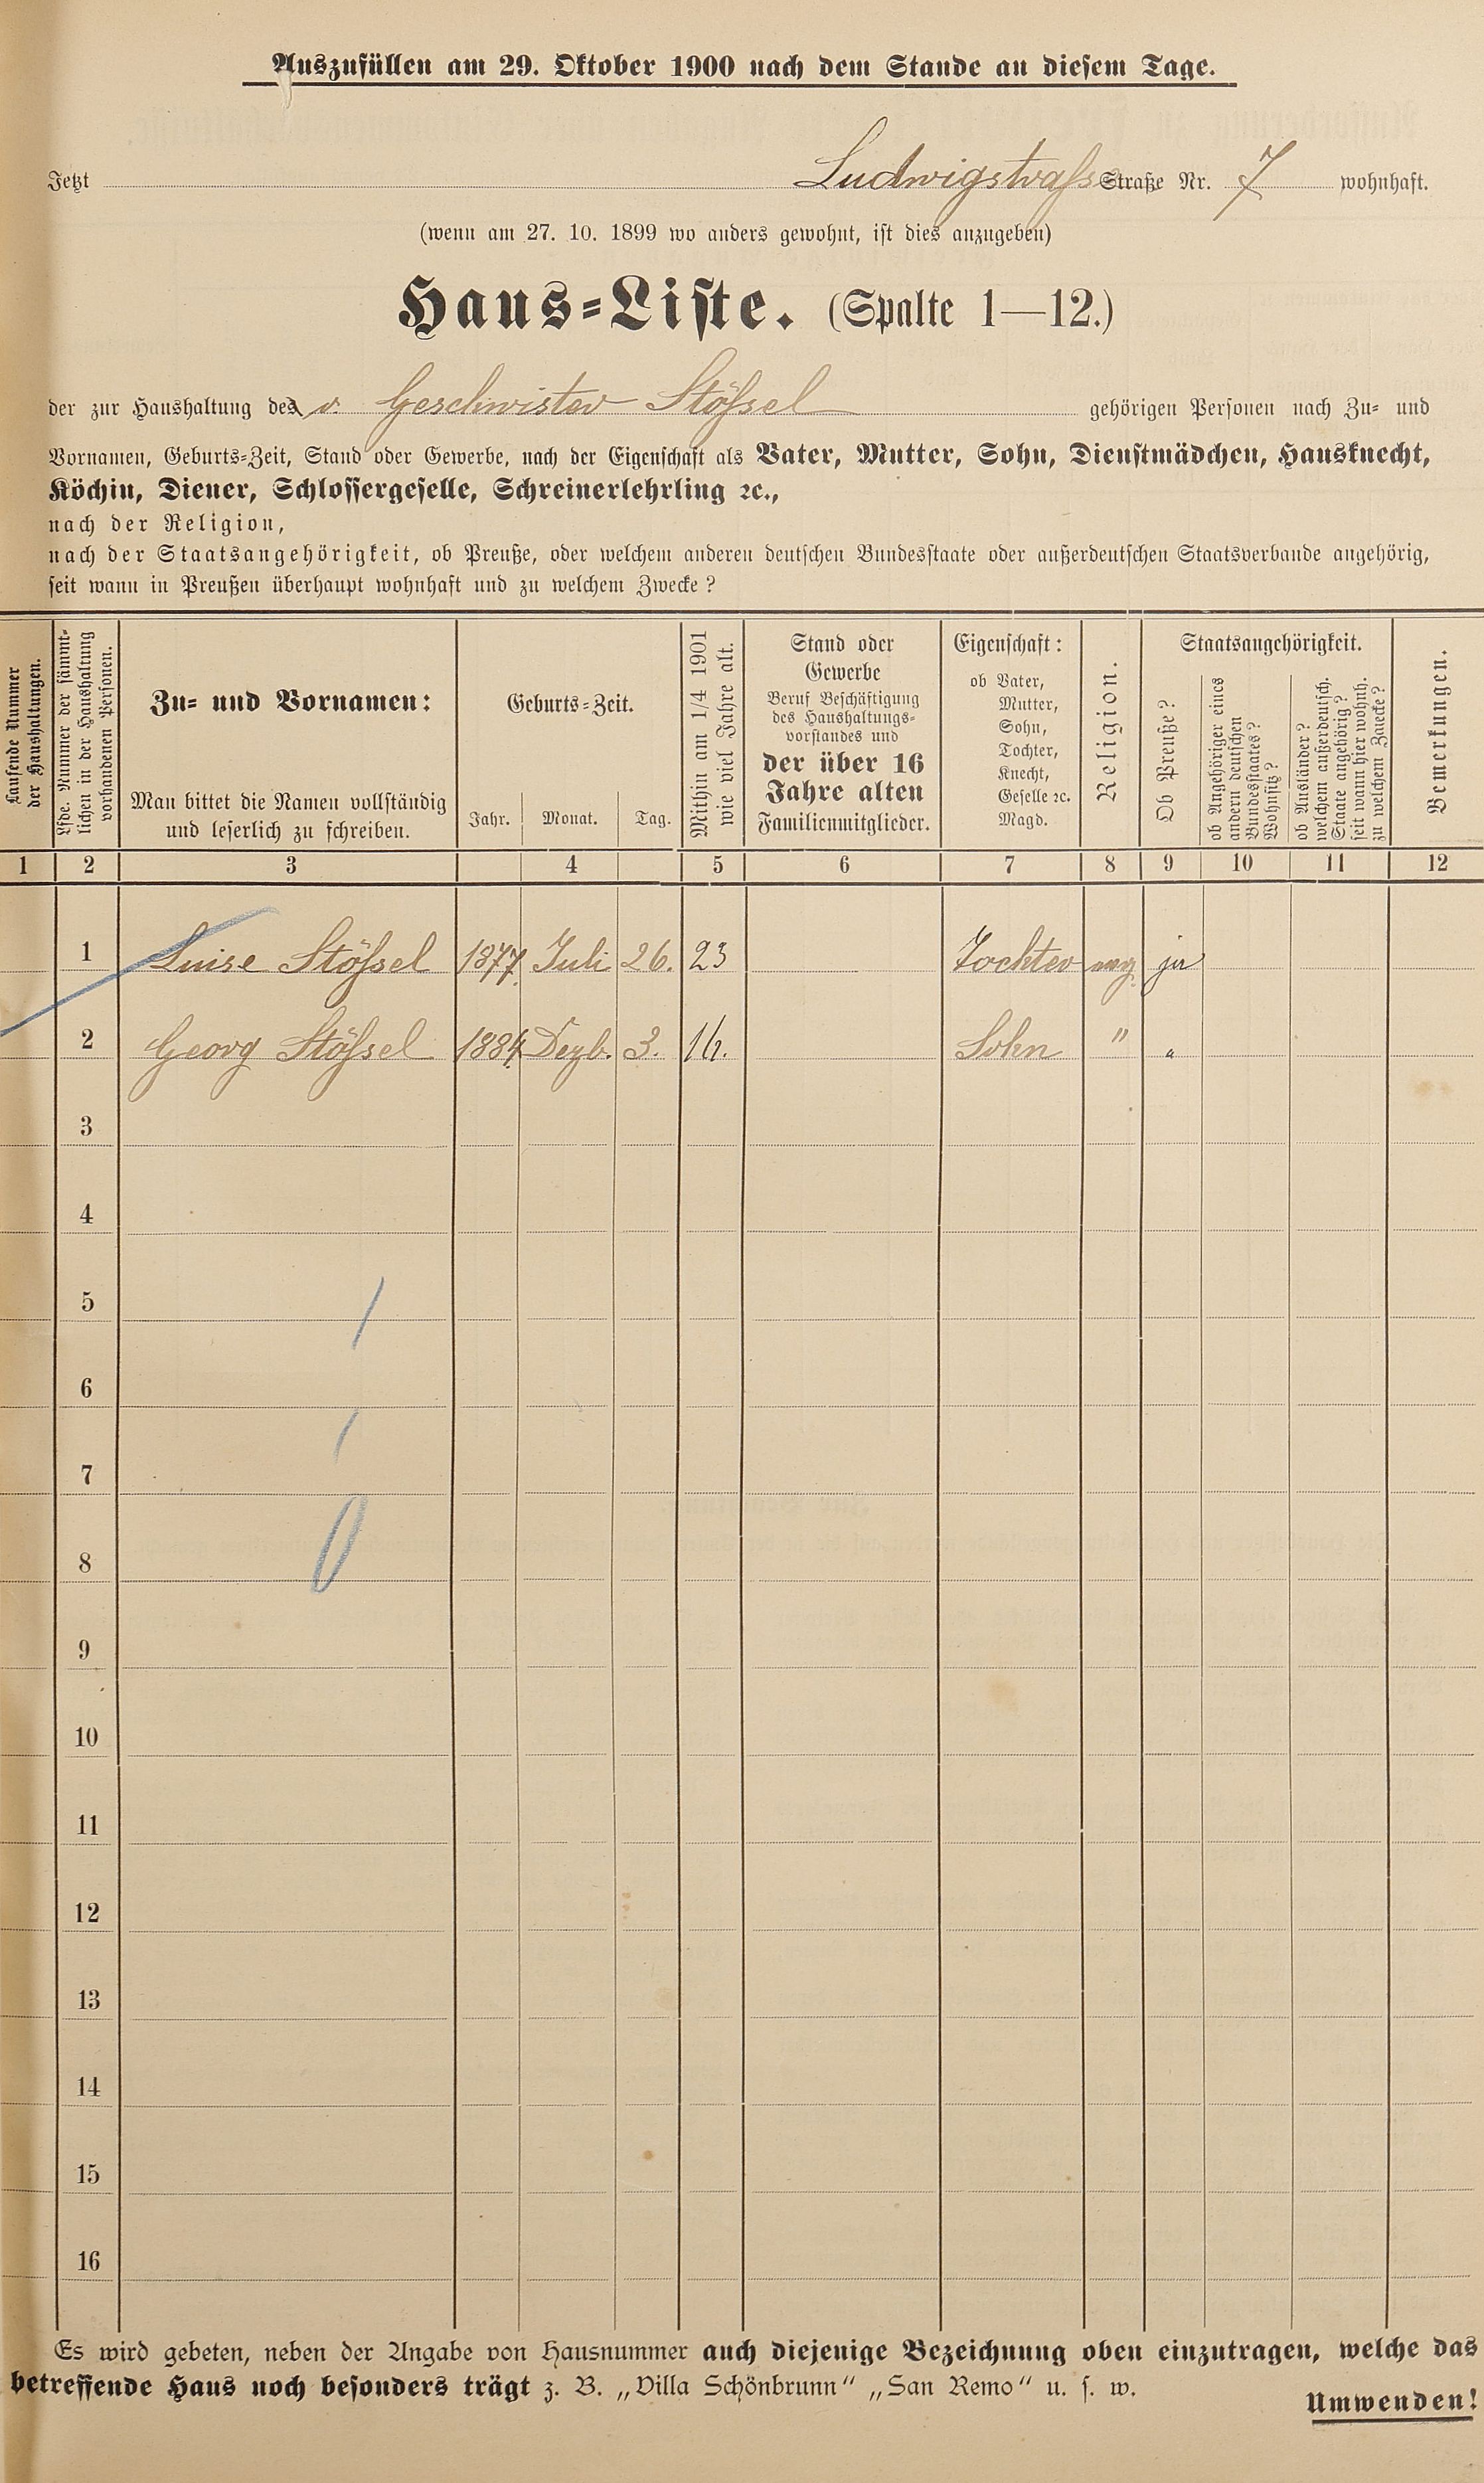 Auszufüllen am 29. Oktober 1900 nach dem Stande an diesem Tage.
Jetzt Ludwigstraße Straße Nr. 7 wohnhaft.
(wenn am 27. 10. 1899 wo anders gewohnt, ist dies anzugeben)
Haus-Liste. (Spalte 1—12.)
der zur Haushaltung des v. Geschwister Stößel gehörigen Personen nach Zu- und
Vornamen, Geburts-Zeit, Stand oder Gewerbe, nach der Eigenschaft als Vater, Mutter, Sohn, Dienstmädchen, Hausknecht,
Köchin, Diener, Schlossergeselle, Schreinerlehrling ꝛc.,
nach der Religion,
nach der Staatsangehörigkeit, ob Preuße, oder welchem anderen deutschen Bundesstaate oder außerdeutschen Staatsverbande angehörig,
seit wann in Preußen überhaupt wohnhaft und zu welchem Zwecke?
Laufende Nummer
der Haushaltungen.
Lfde. Nummer der sämmt-
lichen in der Haushaltung
vorhandenen Personen.
Zu- und Vornamen:
Man bittet die Namen vollständig
und leserlich zu schreiben.
Geburts-Zeit.
Jahr. Monat. Tag.
Mithin am 1/4 1901
wie viel Jahre alt.
Stand oder
Gewerbe
Beruf Beschäftigung
des Haushaltungs-
vorstandes und
der über 16
Jahre alten
Familienmitglieder.
Eigenschaft:
ob Vater,
Mutter,
Sohn,
Tochter,
Knecht,
Geselle ꝛc.
Magd.
Religion.
Staatsangehörigkeit.
Ob Preuße?
ob Angehöriger eines
andern deutschen
Bundesstaates?
Wohnsitz?
ob Ausländer?
welchem außerdeutsch.
Staate angehörig?
seit wann hier wohnh.
zu welchem Zwecke?
Bemerkungen.
1 2 3 4 5 6 7 8 9 10 11 12
1 Luise Stößel 1877 Juli 26. 23 Tochter evg. ja
2 Georg Stößel 1884 Dezb. 3. 16. Sohn " "
3
4
5
6
7
8
9
10
11
12
13
14
15
16
Es wird gebeten, neben der Angabe von Hausnummer auch diejenige Bezeichnung oben einzutragen, welche das
betreffende Haus noch besonders trägt z. B. „Villa Schönbrunn“ „San Remo“ u. s. w.
Umwenden!